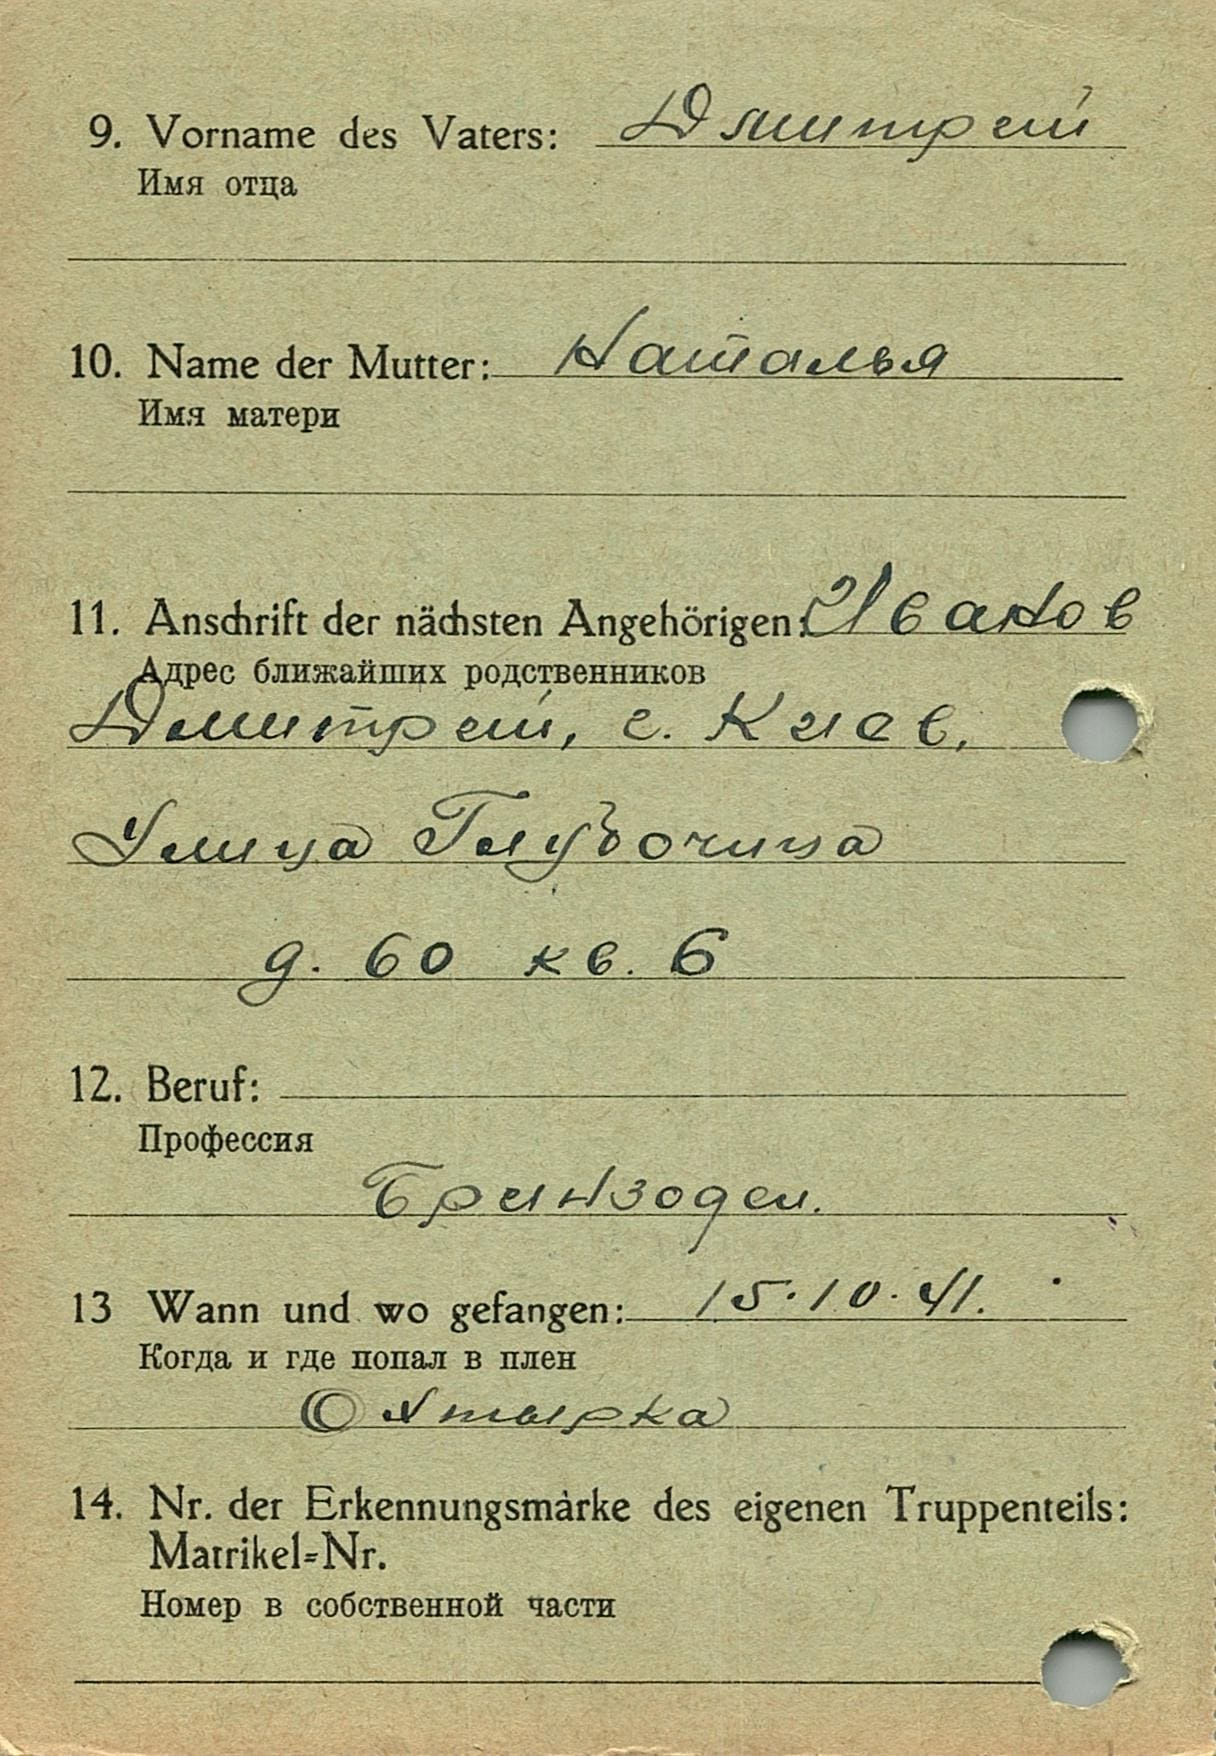 9. Vorname des Vaters: Дмитрей
Имя отца
10. Name der Mutter: Наталья
Имя матери
11. Anschrift der nächsten Angehörigen: Иванов
Адрес ближайших родственников
Дмитрей, г. Киев,
Улица Глубочица
д. 60 кв. 6
12. Beruf:
Профессия
Брынзодел.
13 Wann und wo gefangen: 15.10.41.
Когда и где попал в плен
14. Nr. der Erkennungsmarke des eigenen Truppenteils:
Matrikel=Nr.
Номер в собственной части